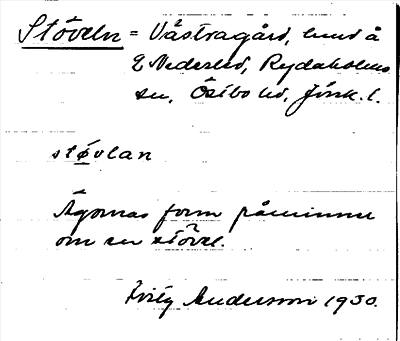 Stöveln = Västragård, lund å
Nederled, Rydaholms
sn, Östbo hd, Jönk. l.
støvlan
Ägornas form påminner
om en stövel.
Andersson 1930.